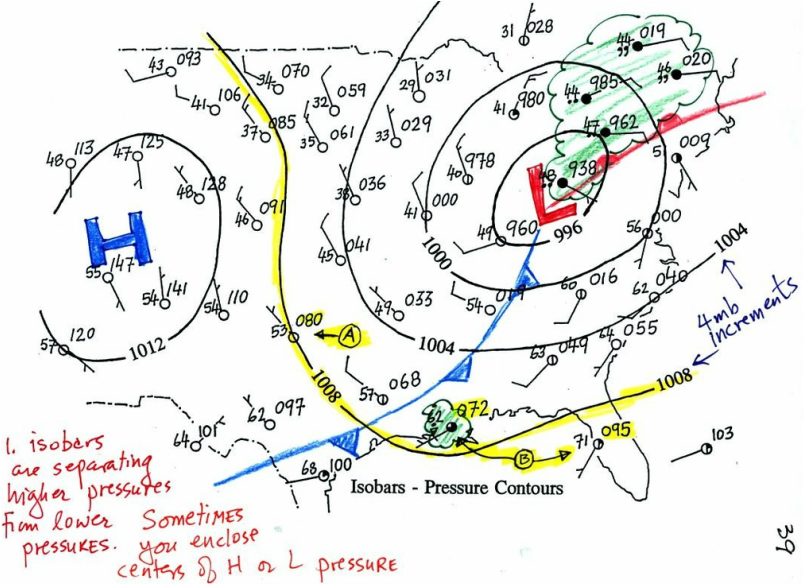 31 028
44 019
43 093
34 070
46 020
41 106
32 059
29 031
44 985
41 980
37 085
35 061
33 029
47 962
48 113
47 125
5 009
978
40
48 128
38 036
48 938
L
46 091
41 000
H
49 960
996
56 000
1004
45 041
1000
55 147
54 141
54 110
60 016
62 040
49 033
54 019
4mb
increments
57 120
1012
53 080
A
1004
64 055
63 049
1008
57 068
1008
62 097
62 072
64 101
71 095
103
B
68 100
Isobars - Pressure Contours
1. isobars
are separating
higher pressures
from lower
pressures.
Sometimes
you enclose
centers of H or L pressure
39